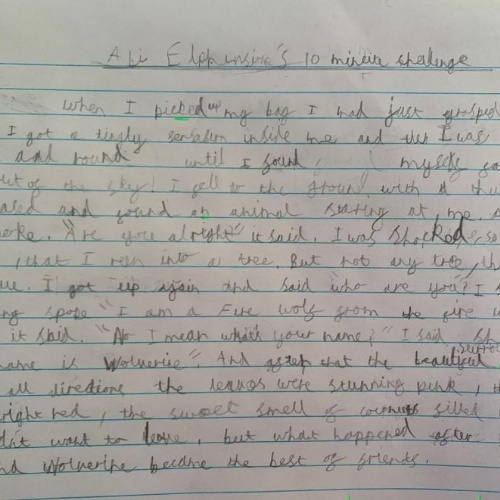 Ali Elphinsine's 10 minute challenge
when I picked up my bag I had just grasped
I got a tingly sensation inside me and then I was
and round until I found myself
out of the sky! I fell to the ground with a thu
and found an animal staring at me
oke. "Are you alright" it said. I was shocked so
, that I ran into a tree. But not any tree, th
ue. I got up again and said who are you? I s
ng spoke "I am a Fire wolf from the fire w
it said. "No I mean what's your name?" I said
name is Wolverine" And after that the beautiful
all directions the leaves were stunning pink, th
right red, the sweet smell of coconuts filled
dn't want to leave, but what happened after
nd Wolverine became the best of friends.